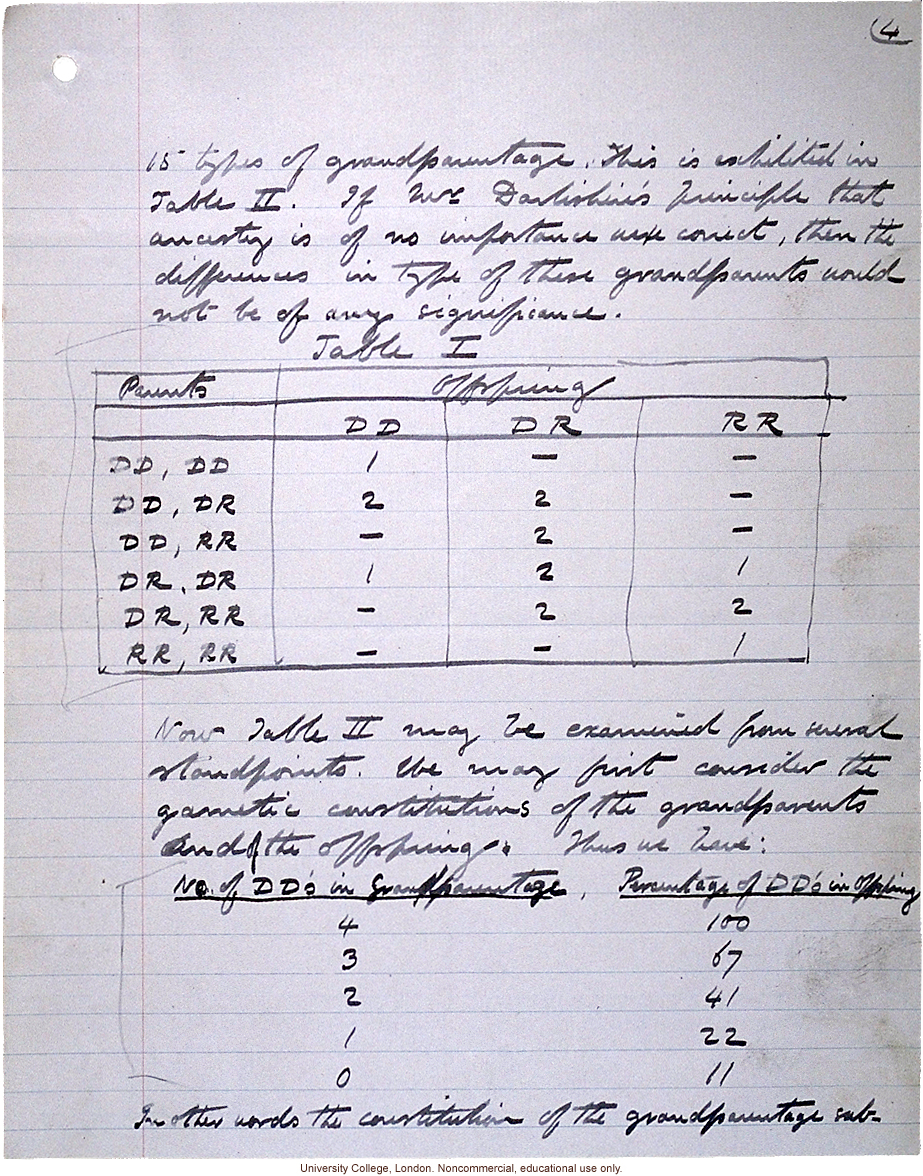 (4
15 types of grandparentage. This is exhibited in
Table II. If Mr Darbishire's principle that
ancestry is of no importance were correct, then the
differences in type of these grandparents would
not be of any significance.
Table I
Parents Offspring
DD DR RR
DD, DD 1 — —
DD, DR 2 2 —
DD, RR — 2 —
DR, DR 1 2 1
DR, RR — 2 2
RR, RR — — 1
Now Table II may be examined from several
standpoints. We may first consider the
gametic constitutions of the grandparents
and of the offspring. Thus we have:
No. of DD's in Grandparentage, Percentage of DD's in Offspring
4 100
3 67
2 41
1 22
0 11
In other words the constitution of the grandparentage sub-
University College, London. Noncommercial, educational use only.